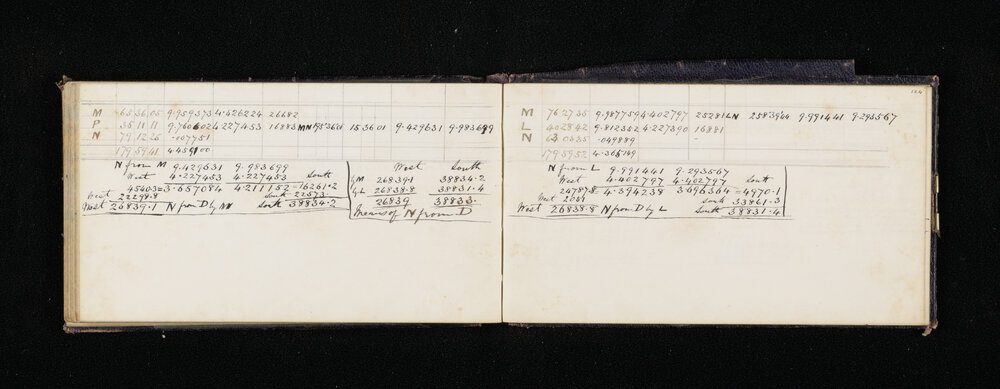 M 65 36 05 9.959373 4.426224 26682
P 35 11 11 9.760602 4.227453 16883 MN 195 36 01 15 36 01 9.429631 9.983699
N 79.12.25 .007751
179 59 41 4.459100
N from M 9.429631 9.983699
West 4.227453 4.227453 South
4540.3 = 3.657084 4.211152 = 16261.2
West 22298.8 South 22573.
West 26839.1 N from D by M South 38834.2
West South
by M 26839.1 38834.2
by L 26838.8 38831.4
26839 38833.
Means of N from D
124
M 76 27 35 9.9877594 4.402797 25281 LN 258 39 44 9.991441 9.293567
L 40 28 42 9.812382 4.227390 16881
N 63.03.35 .049889 -
179 59 52 4.365149
N from L 9.991441 9.293567
West 4.402797 4.402797 South
24787.8 = 4.394238 3.696364 = 4970.1
West 2051 South 33861.3
West 26838.8 N from D by L South 38831.4